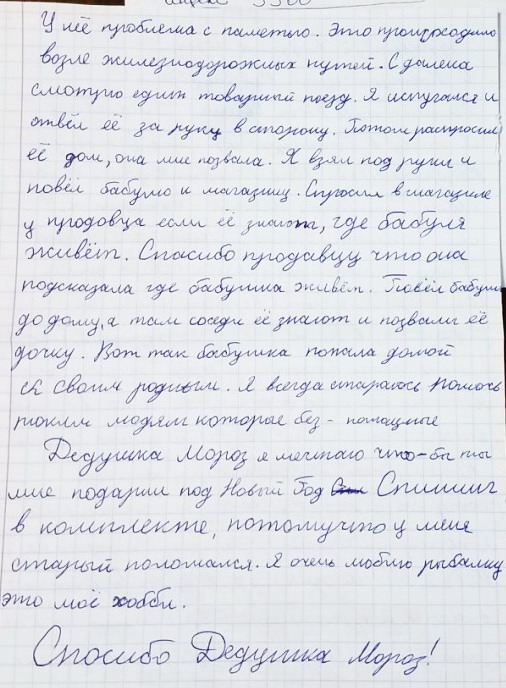 3300
У неё проблема с паметью. Это происходило
возле жилезнодорожных путей. С далека
смотрю едит товарный поезд. Я испугался и
отвёл её за руку в сторону. Потом распросил
её дом, она мне позвала. Я взял под руки и
повёл бабулю к магазину. Спросил в магазине
у продовца если её знают, где бабуля
живёт. Спасибо продавцу что она
подсказала где бабушка живёт. Повёл бабушк
до дому, а там соседи её знают и позвали её
дочку. Вот так бабушка попала домой
к своим родным. Я всегда стараюсь помочь
таким людям которые без-помащные
Дедушка Мороз я мечтаю что-бы ты
мне подарил под Новый Год Спининг
в комплекте, потомучто у меня
старый поломался. Я очень люблю рыбалку
это моё хобби.
Спосибо Дедушка Мороз!